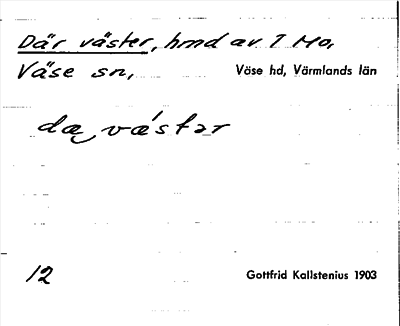 Där väster, hmd av 7 Mo,
Väse sn,
Väse hd, Värmlands län
dæ vǽstər
12
Gottfrid Kallstenius 1903